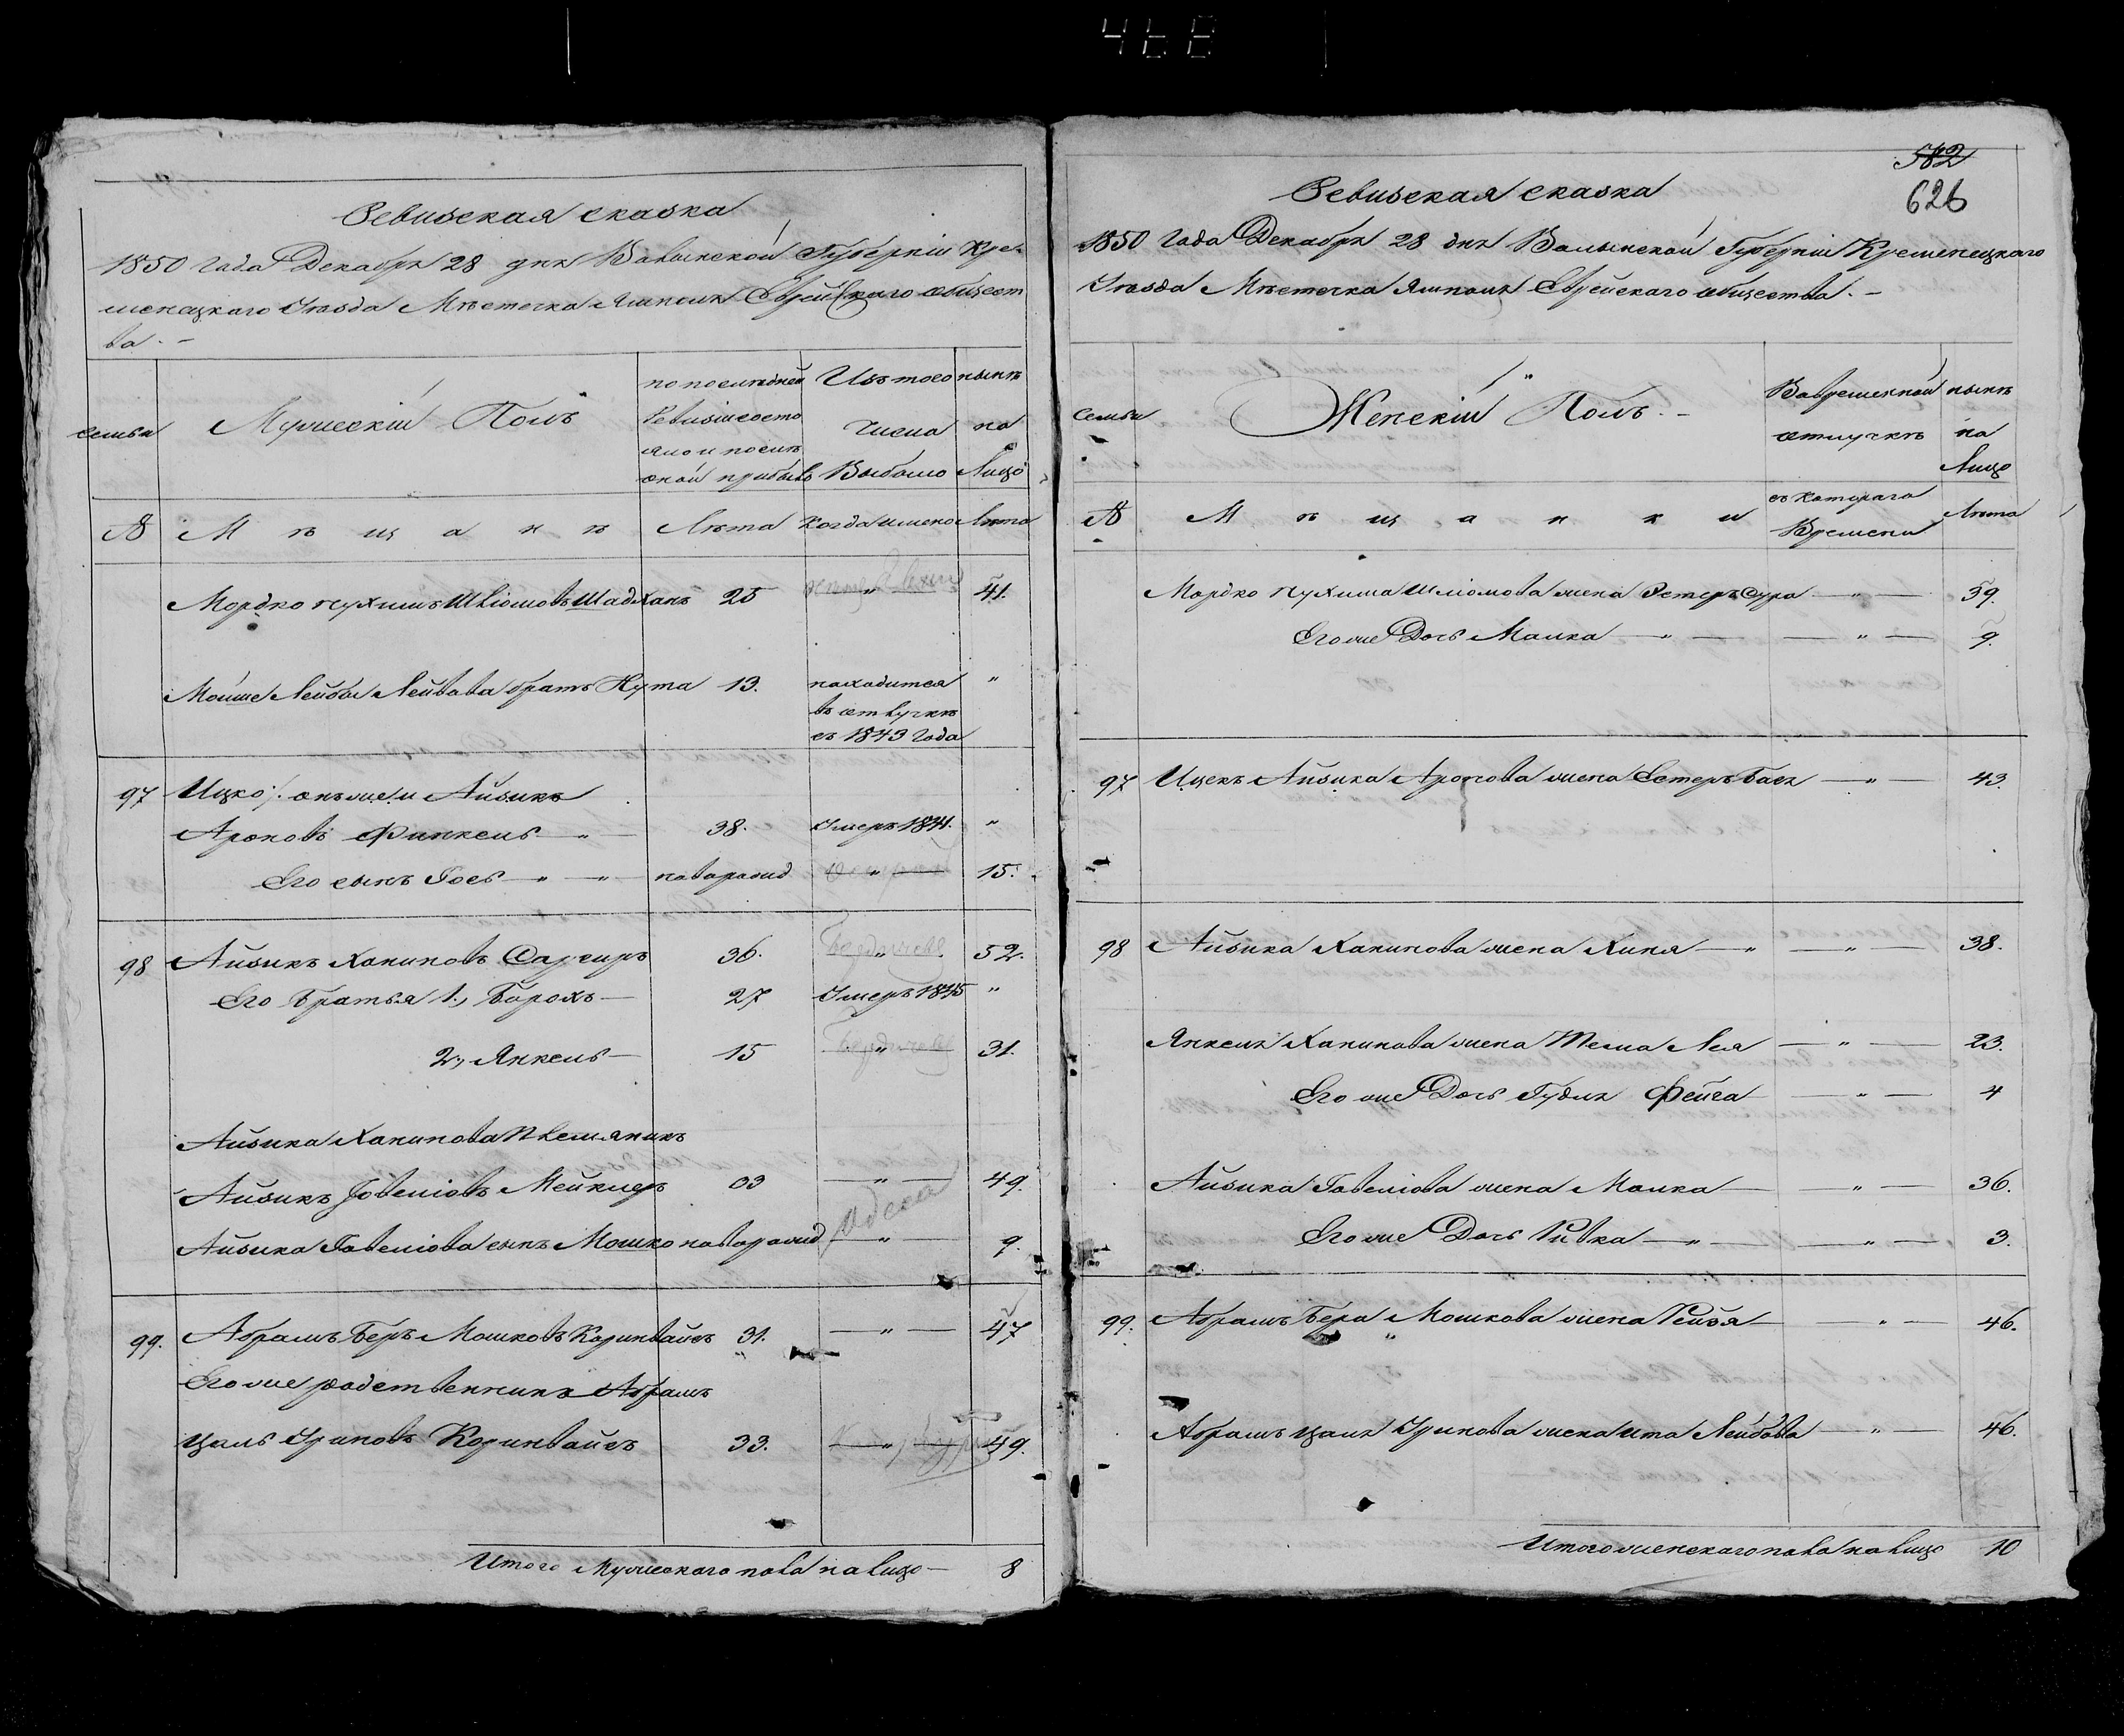 468
Ревизская сказка
1850 года Декабря 28 дня Волынской Губерніи Кре-
менецкаго Уезда Мѣстечка Ямполя Еврейскаго общест
ва. -
семьи
Мужескій Полъ
по последней
Ревизіи состо
яло и после
оной прибыло
Изъ того
числа
Выбыло
нынѣ
на
Лицо
№ Мѣщане Лѣта Когда именно Лѣта
Мордко Нухимъ Шліомовъ Шадханъ 25 " 41.
Мойше Лейбы Лейбова братъ Нута 13. находится "
въ отлучкѣ
съ 1843 года
97 Ицко онъ же и Айзикъ
Ароновъ Финкель " 38. Умеръ 1841. "
Его сынъ Гось " " новорожд " 15.
98 Айзикъ Ханиновъ 36. " 52.
Его Братья 1, Борохъ 27 Умеръ 1845 "
2, Янкель 15 " 31.
Айзика Ханинова племяникъ
Айзикъ Мейклеръ 33 " 49.
Одесса
Айзика сынъ Мошко новорожд " 9.
99. Абрамъ Беръ Мошковъ 31. " 47
Его же родственникъ Абрамъ
Цаль 33. " 49.
Итого Мужескаго пола на лицо - 8
582
626
Ревизская сказка
1850 года Декабря 28 дня Волынской Губерніи Кременецкаго
Уезда Мѣстечка Ямполя Еврейскаго общества. -
Семьи
Женскій Полъ. -
Вовременной
отлучкѣ
нынѣ
на
Лицо
№ Мѣщанки
съ котораго
Времени
Лѣта
Мордко Нухима Шліомова жена Эстеръ Сура " 39.
Его же Дочь Малка " " 9.
97 Ицекъ Айзика Аронова жена Естеръ Бася " 43.
98 Айзика Ханинова жена Хиня " " 38.
Янкеля Ханинова жена Лея " 23.
Его же Дочь Гудля Фейга " 4
Айзика жена Малка " 36.
Его же Дочь Ривка " " 3.
99. Абрамъ Бера Мошкова жена Рейзя " 46.
Абрамъ Цаля жена Ита Лейбова " 46.
Итого женскаго пола на лицо 10